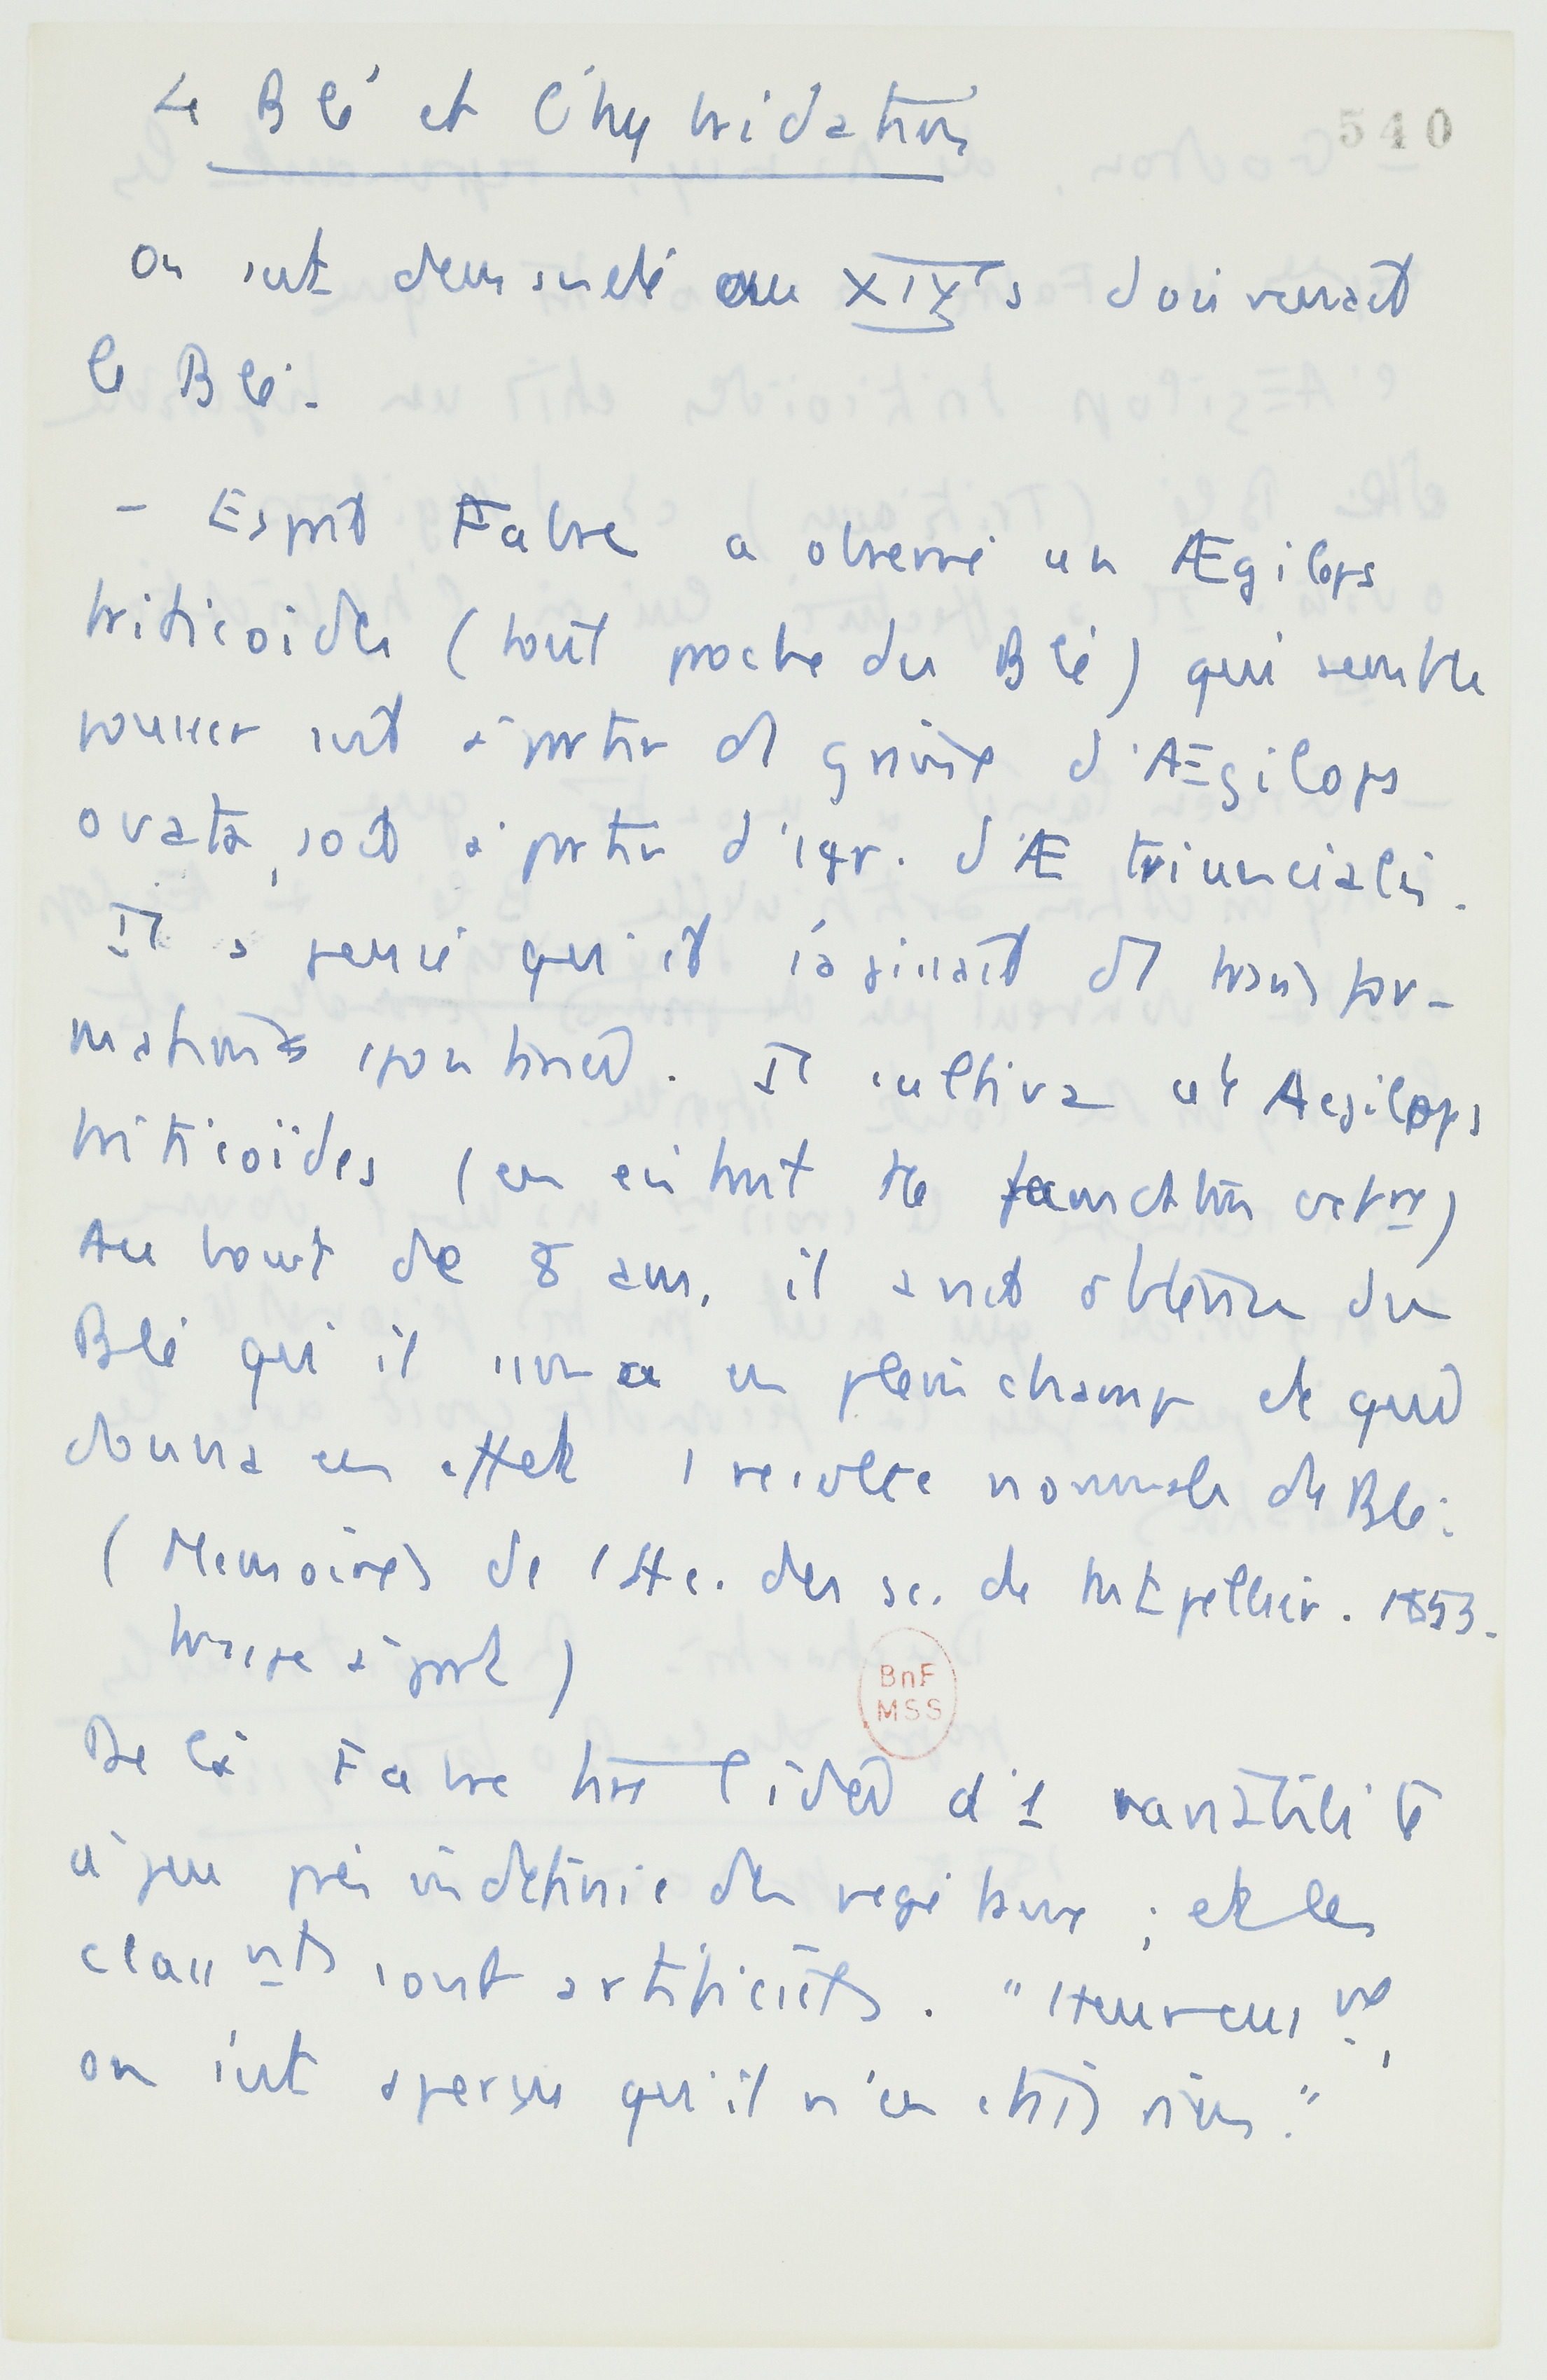 Le Blé et l'hybridation
540
On s'est demandé au XIXe s d'où venait
le Blé.
- Esprit Fabre a observé un Ægilops
triticoides (tout proche du Blé) qui semble
pousser soit à partir de graines d'Ægilops
ovata, soit à partir d'Æ triuncialis.
Il a pensé qu'il s'agissait de transfor-
mations spontanées. Il cultiva cet Aegilops
triticoïdes (en évitant la
Au bout de 8 ans, il avait obtenu du
Blé qu'il sema en plein champ et qui
donna en effet 1 récolte normale de Blé.
(Mémoires de l'Ac. des sc. de Mtpellier. 1853.
tirage à part)
De là Fabre tire l'idée d'1 variabilité
à peu près indéfinie des végétaux ; et les
classnts sont artificiels. "Heureusnt,
on s'est aperçu qu'il n'en était rien."
BnF
MSS